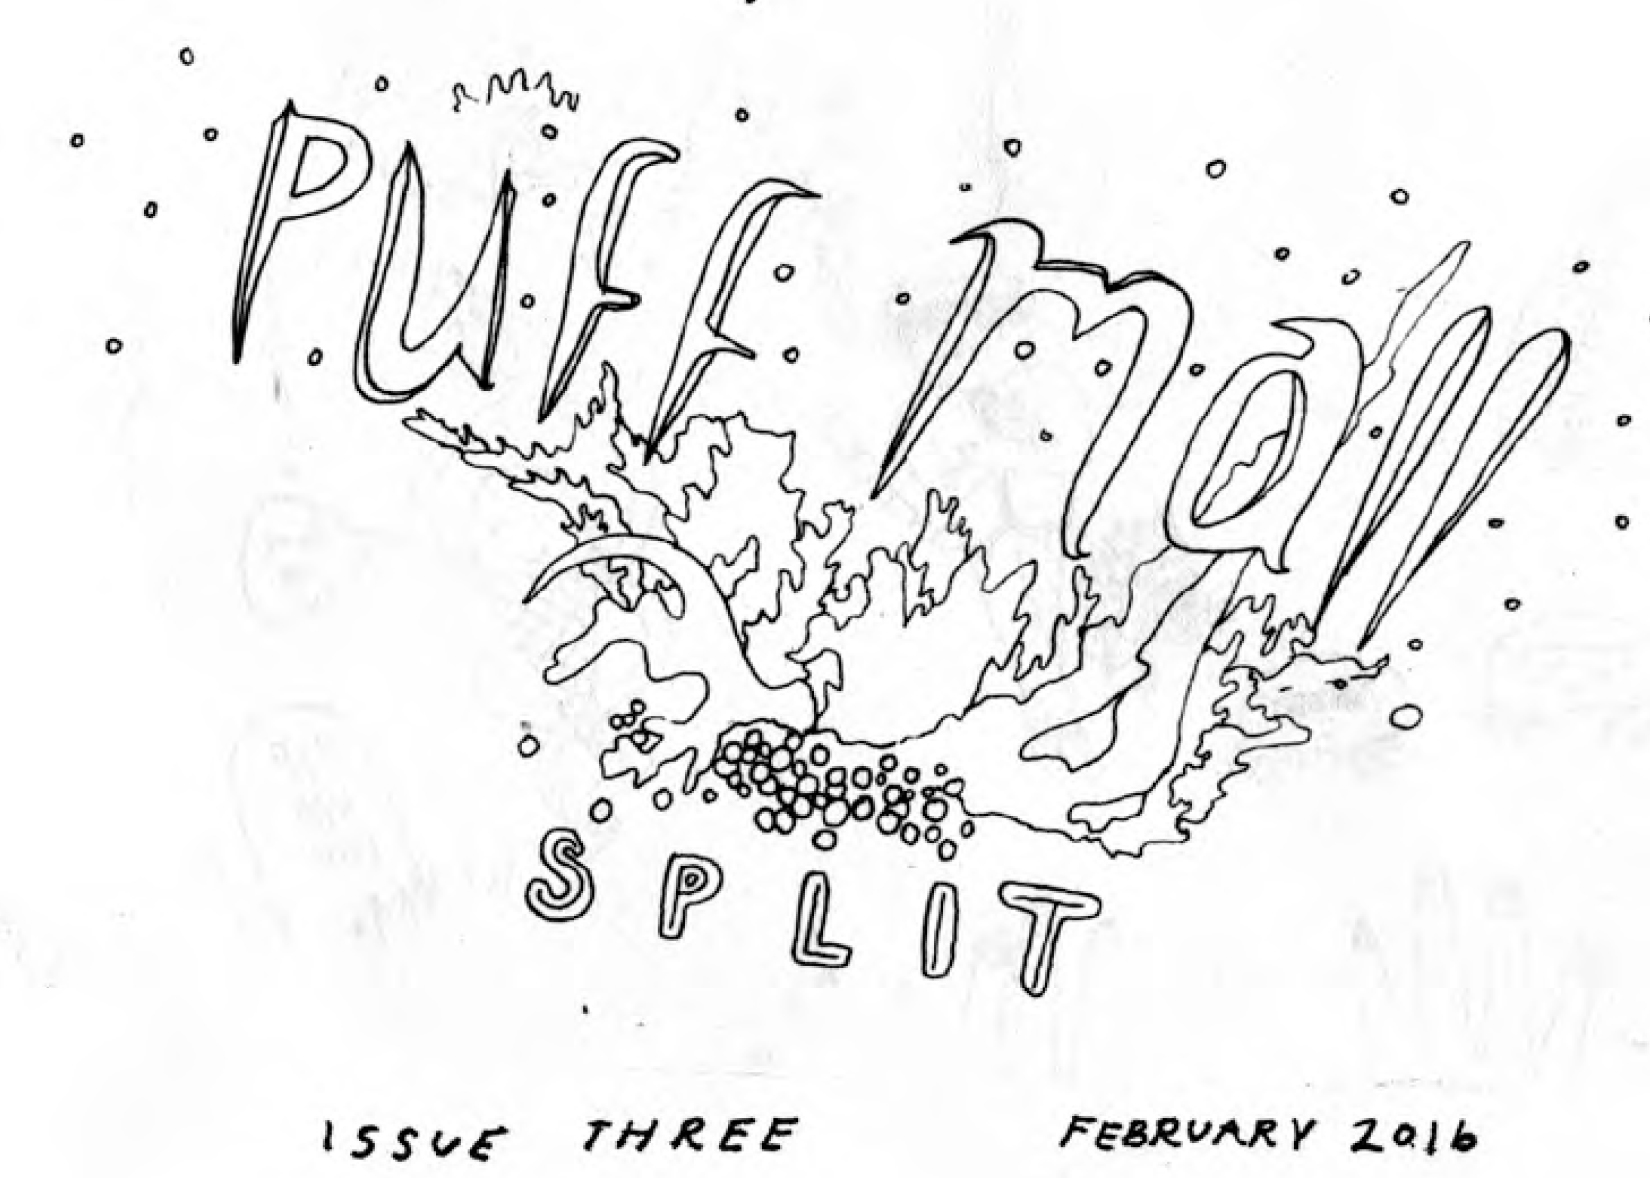 PUFF mall
SPLIT
ISSUE THREE FEBRUARY 2016